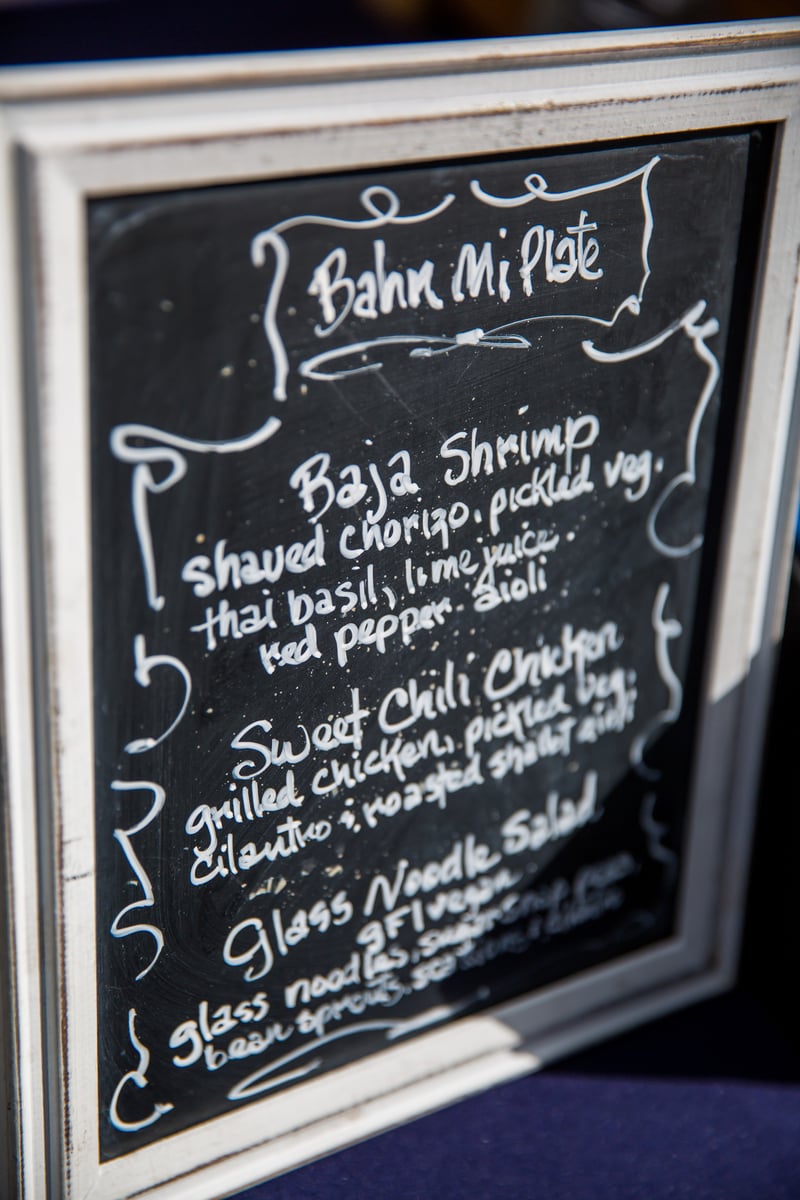 Bahn Mi Plate
Baja Shrimp
shaved chorizo, pickled veg.
thai basil, lime juice,
red pepper aioli
Sweet Chili Chicken
grilled chicken, pickled veg,
cilantro & roasted shallot aioli
Glass Noodle Salad
gf/vegan
glass noodles, sugar snap peas
bean sprouts,